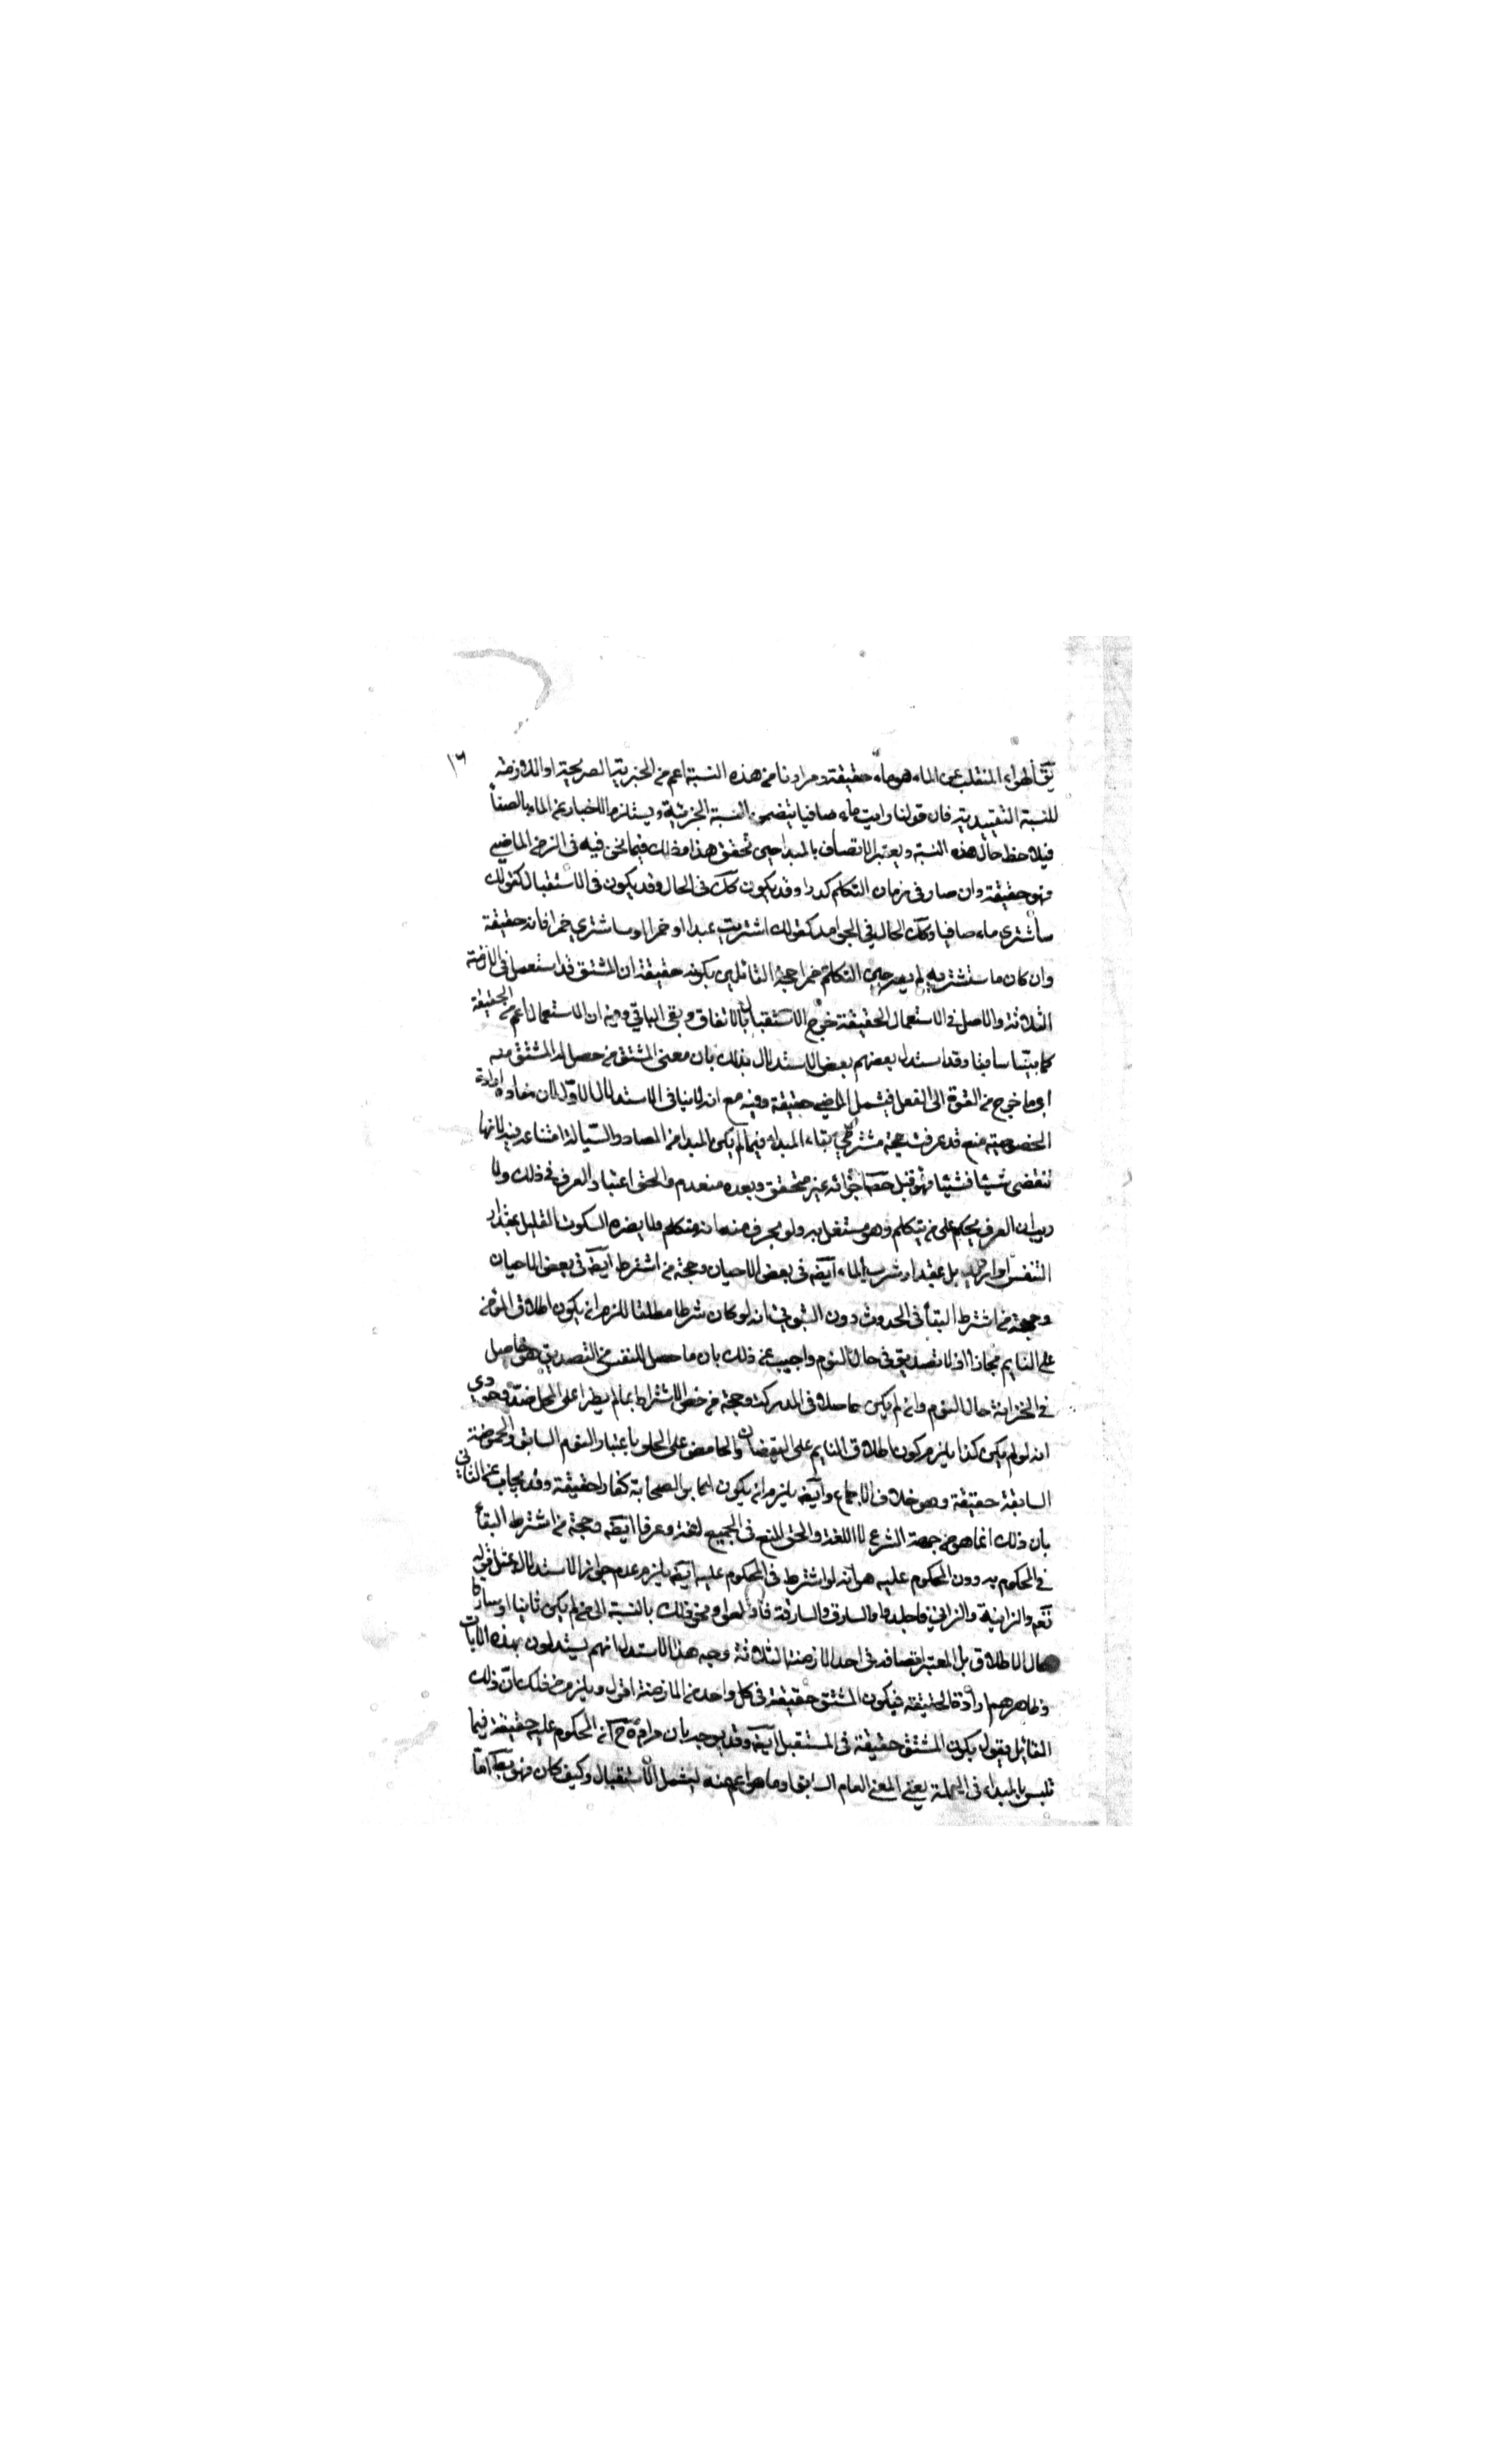 ١٦
يقال للهواء المنقلب عن الماء هو ماء حقيقة ومرادنا من هذه النسبة اعم من الخبرية الصريحة او اللازمة
للنسبة التقييدية فان قولنا رايت ماء صافيا يتضمن النسبة الخبرية ويستلزم الاخبار عن الماء بالصفا
فيلاحظ حال هذه النسبة ويعتبر الاتصاف بالمبدا حين تحقق هذا وذلك فيما نحن فيه في الزمن الماضي
فهو حقيقة وان صار في زمان التكلم كدرا وقد يكون كك في الحال وقد يكون في الاستقبال كقولك
سأشتري ماء صافيا وكك الحال في الجوامد كقولك اشتريت عبدا او خمرا او سأشتري خمرا فانه حقيقة
وان كان ما ستشتريه لم يصر حين التكلم خمرا حجة القائلين بكونه حقيقة ان المشتق قد استعمل في الازمنة
الثلاثة والاصل في الاستعمال الحقيقة خرج الاستقبال بالاتفاق وبقي الباقي وفيه ان الاستعمال اعم من الحقيقة
كما بينا سابقا وقد استدل بعضهم بعض الاستدلال بذلك بان معنى المشتق من حصل له المشتق منه
اي ما خرج من القوة الى الفعل فيشمل الماضي حقيقة وفيه مع انه لا ينافي الاستدلال الاول لان مفاده ارادة
الخصوصية منع قد عرفت حجة مشترطي بقاء المبداء فيما لم يكن المبدا من المصادر السيالة امتناعه فيه لانها
تنقضي شيئا فشيئا فهو قبل حصول اجزائه غير متحقق وبعده منعدم والحق اعتبار العرف في ذلك ولا
ريب ان العرف يحكم على من يتكلم وهو مشتغل به ولو بحرف منه انه متكلم ولا يضره السكوت القليل بمقدار
التنفس او ازيد بل بمقدار شرب الماء ايضا في بعض الاحيان وحجة من اشترط ايضا في بعض الاحيان
وحجة من اشترط البقاء في الحدوث دون الثبوتي انه لو كان شرطا مطلقا للزم ان يكون اطلاق المؤمن
على النايم مجازا اذ لا تصديق في حال النوم واجيب عن ذلك بان ما حصل للنفس من التصديق هو حاصل
في الخزانة حال النوم وان لم يكن حاصلا في المدركة وحجة من خص الاشتراط بما لم يطرا على المحل ضد وجودي
انه لو لم يكن كذا يلزم كون اطلاق النايم على اليقضان والحامض على الحلو باعتبار النوم السابق والحموضة
السابقة حقيقة وهو خلاف الاجماع وايضا يلزم ان يكون اكابر الصحابة كفارا حقيقة وقد يجاب عن الثاني
بان ذلك انما هو من جهة الشرع لا اللغة والحق المنع في الجميع لغة وعرفا ايضا وحجة من اشترط البقاء
في المحكوم به دون المحكوم عليه هو انه لو اشترط في المحكوم عليه ايضا يلزم عدم جواز الاستدلال بمثل قوله
تعه والزانية والزاني فاجلدوا والسارق والسارقة فاقطعوا ونحو ذلك بالنسبة الى من لم يكن زانيا او سارقا
حال الاطلاق بل المعتبر اتصافه في احد الازمنة الثلاثة وجه هذا الاستدلال انهم يستدلون بهذه الايات
وظاهرهم ارادة الحقيقة فيكون المشتق حقيقة في كل واحد من الازمنة اقول ويلزم من ذلك ان ذلك
القائل يقول بكون المشتق حقيقة في المستقبل ايضا وقد يوجه بان مراده ح ان المحكوم عليه حقيقة فيما
تلبس بالمبداء في الجملة يعني المعنى العام السابق او ما هو اعم منه ليشمل الاستقبال وكيف كان فهو